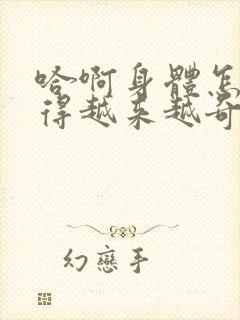 哈啊身體怎
得越来越奇
幻戀手